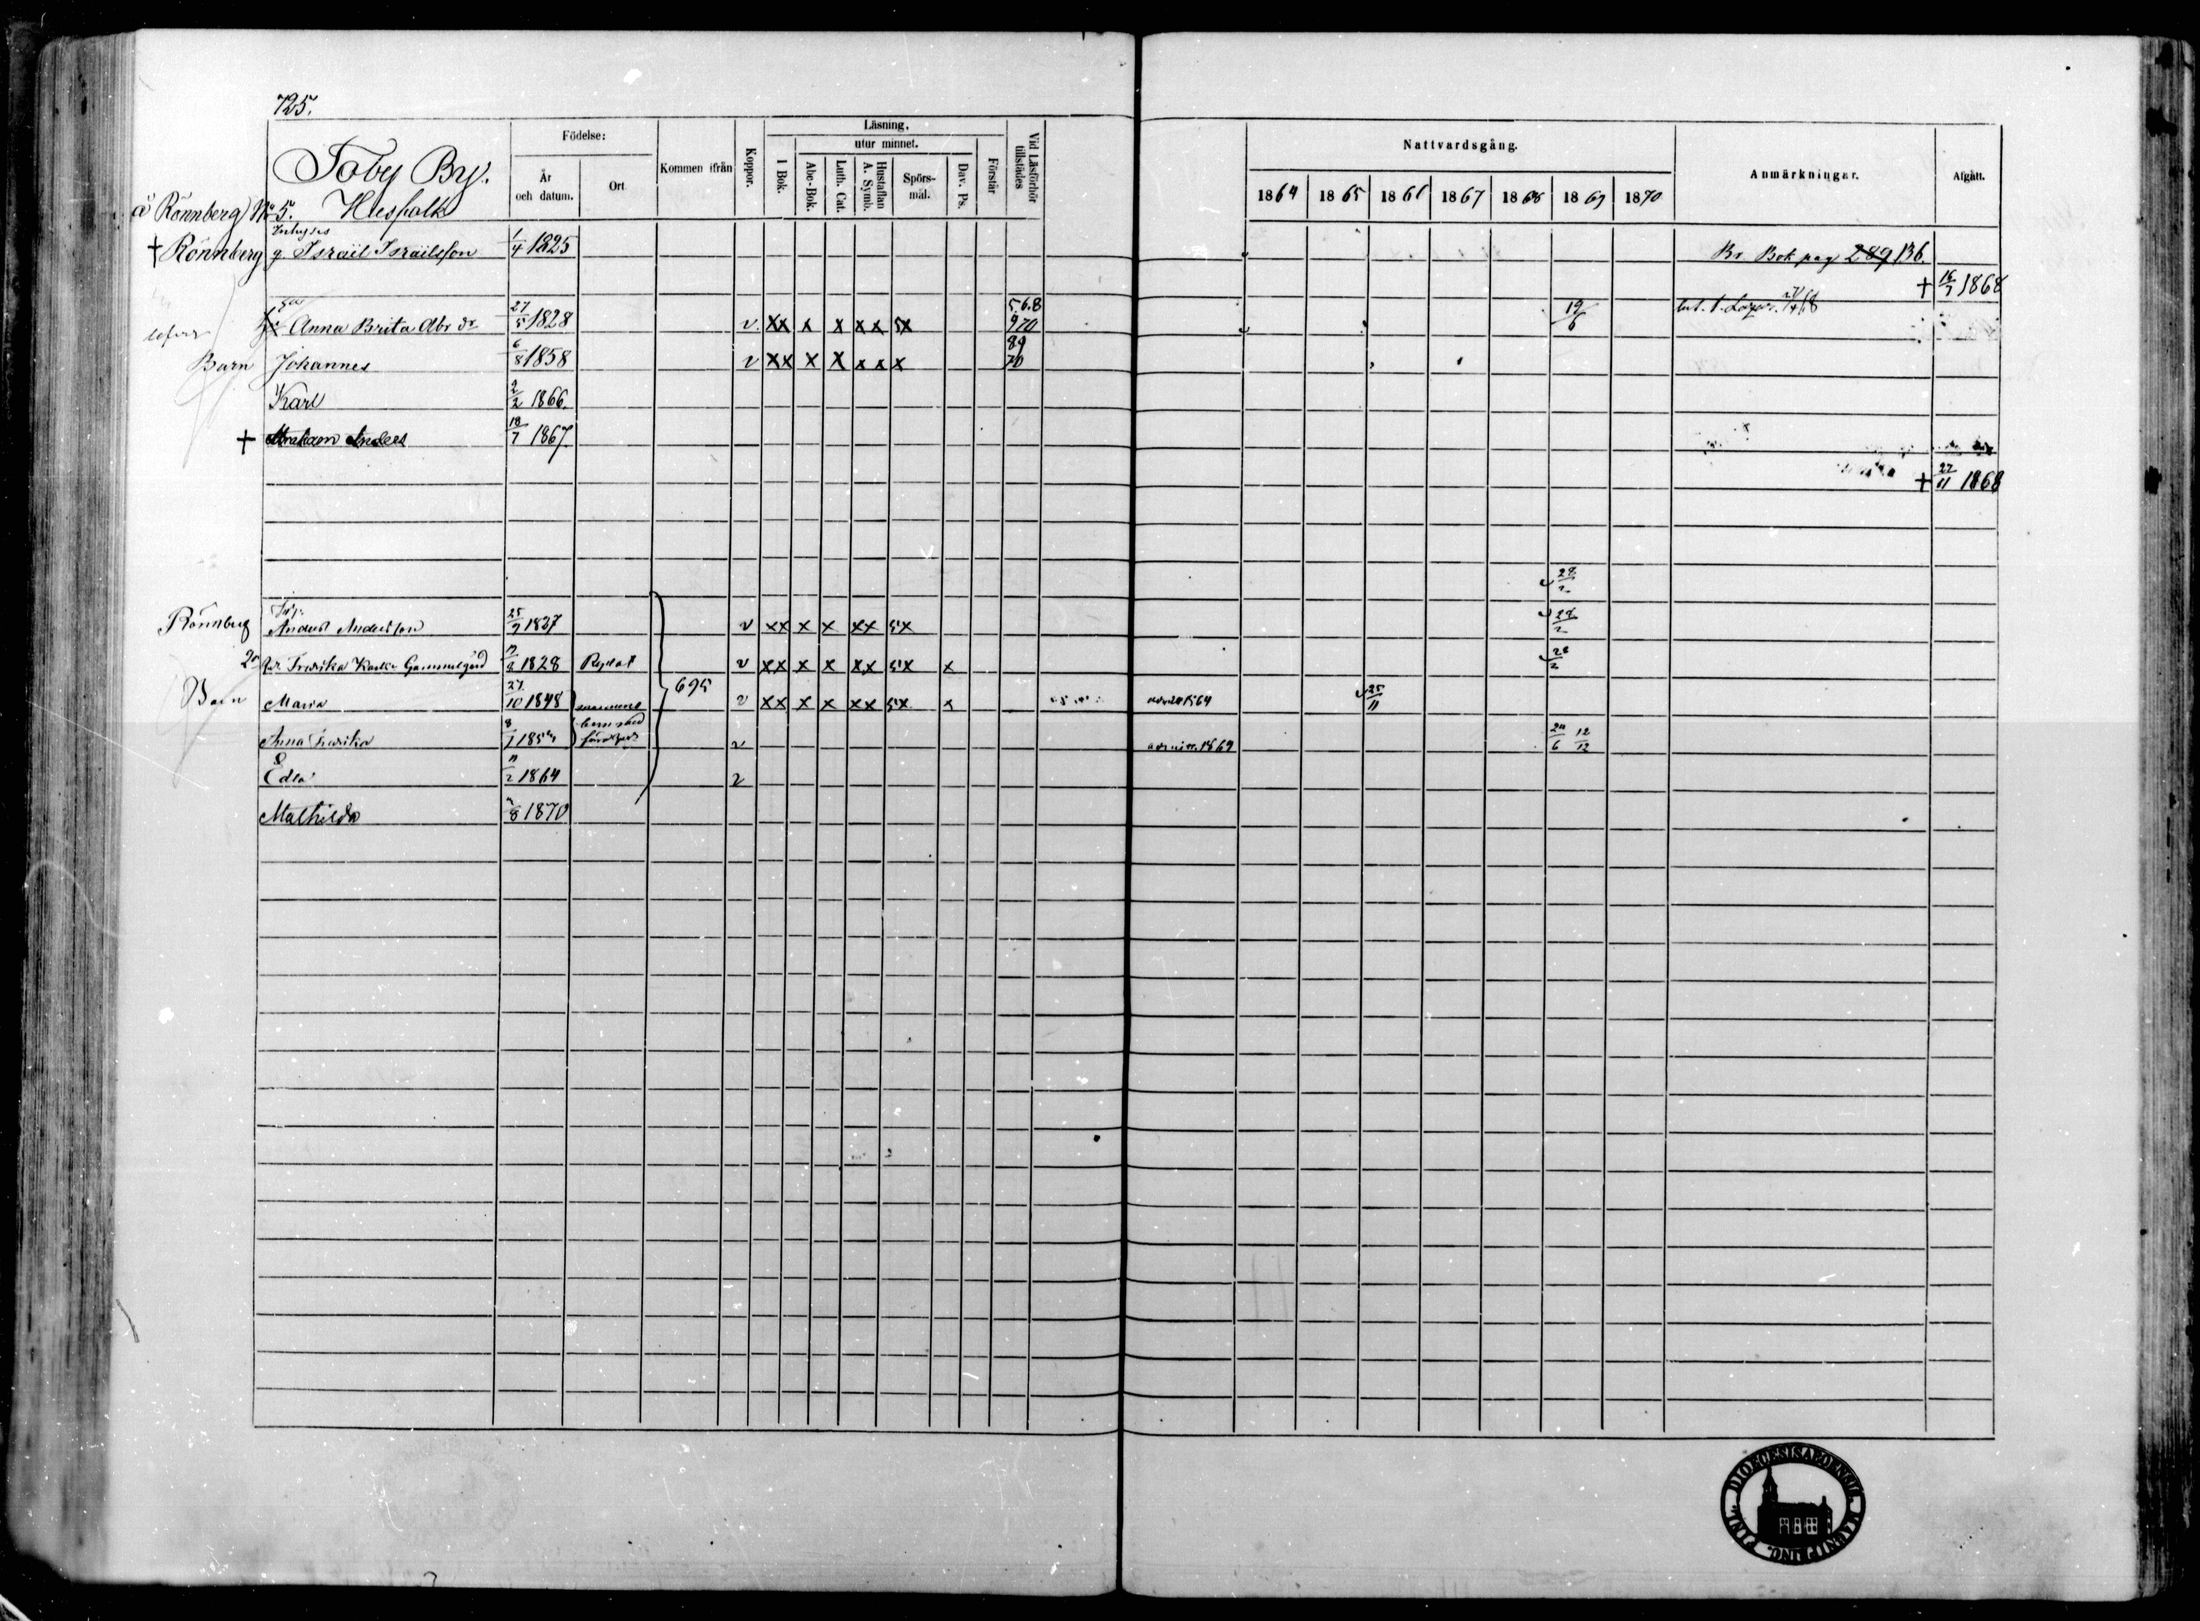 725.
Toby By.
Födelse:
År och datum.
Ort.
Kommen ifrån
Koppor.
Läsning,
utur minnet.
I Bok.
Abc-Bok.
Luth. Cat.
Hustaflan A. Symb.
Spörs-mål.
Dav. Ps.
Förstår
Vid Läsförhör tillstädes
Nattvardsgång.
1864 1865 1866 1867 1868 1869 1870
Anmärkningar.
Afgått.
å Rönnberg No 5. Husfolk
Inhyses
† Rönnberg g. Israël Israëlsson 1/4 1825 Br. Bok pag 289 136.
† 16/7 1868
Anna Brita Abr dr 27/5 1828 v. xx x x xx 5x 5.6.8 9 70 19/6
Barn Johannes 6/8 1858 v xx x x xx x 89 70
Karl 2/2 1866.
† Abraham Anders 18/7 1867.
† 27/11 1868
28/2
Rönnberg Anders Andersson 25/9 1827 v xx x x xx 5x 28/2
Fredrika Gammelgård 1828 v xx x x xx 5x x 28/2
Barn Maria 27/10 1848 695 v xx x x xx 5x x 1864 25/11
Anna Fredrika v 1869 20/6 12/12
Edla 11/2 1864 v
Mathilda 1870
DIOECESIS ABOENSIS. MAGNI PRINC. FINL.